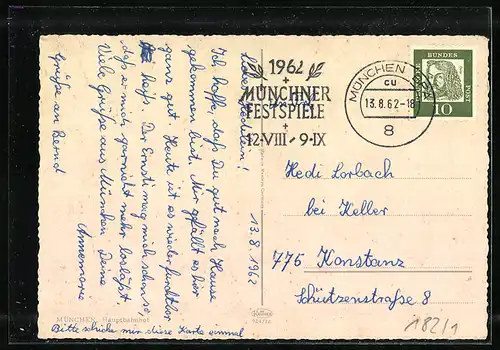 1962
MÜNCHNER
FESTSPIELE
12·VIII - 9·IX
MÜNCHEN
cu
13.8.62-18
8
DEUTSCHE
BUNDES
POST
10
13.8.1962
Ich hoffe, daß Du gut nach Hause
gekommen bist. Mir gefällt es hier
ganz gut. Heute ist es wieder furchtbar
heiß. Du Ernsti mag mich schon so,
daß er mich garnicht mehr losläßt
Viele Grüße aus München Deine
Annemone
Grüße an Bernd
Bitte schicke mir diese Karte einmal
MÜNCHEN Hauptbahnhof
Hedi Lorbach
bei Keller
775 Konstanz
Schützenstraße 8
182/1